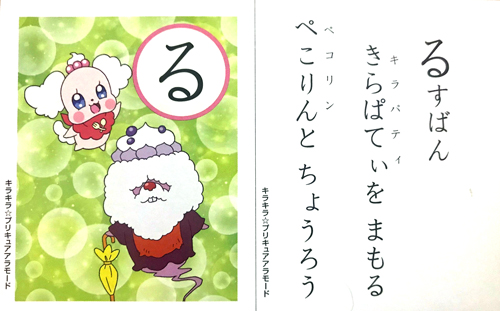 る
キラキラ☆プリキュアアラモード
るすばん
きらぱてぃを まもる
キラパティ
ぺこりんと ちょうろう
ペコリン
キラキラ☆プリキュアアラモード